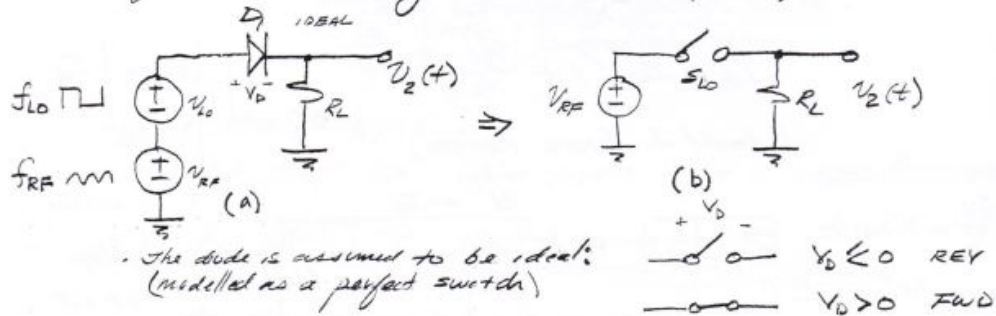 D₁ IDEAL
+ V_D -
V₂(t)
f_LO
V_LO
R_L
f_RF
V_RF
(a)
⇒
V_RF
S_LO
R_L
V₂(t)
(b)
+ V_D -
· The diode is assumed to be ideal:
(modelled as a perfect switch)
V_D ≤ 0 REV
V_D > 0 FWD